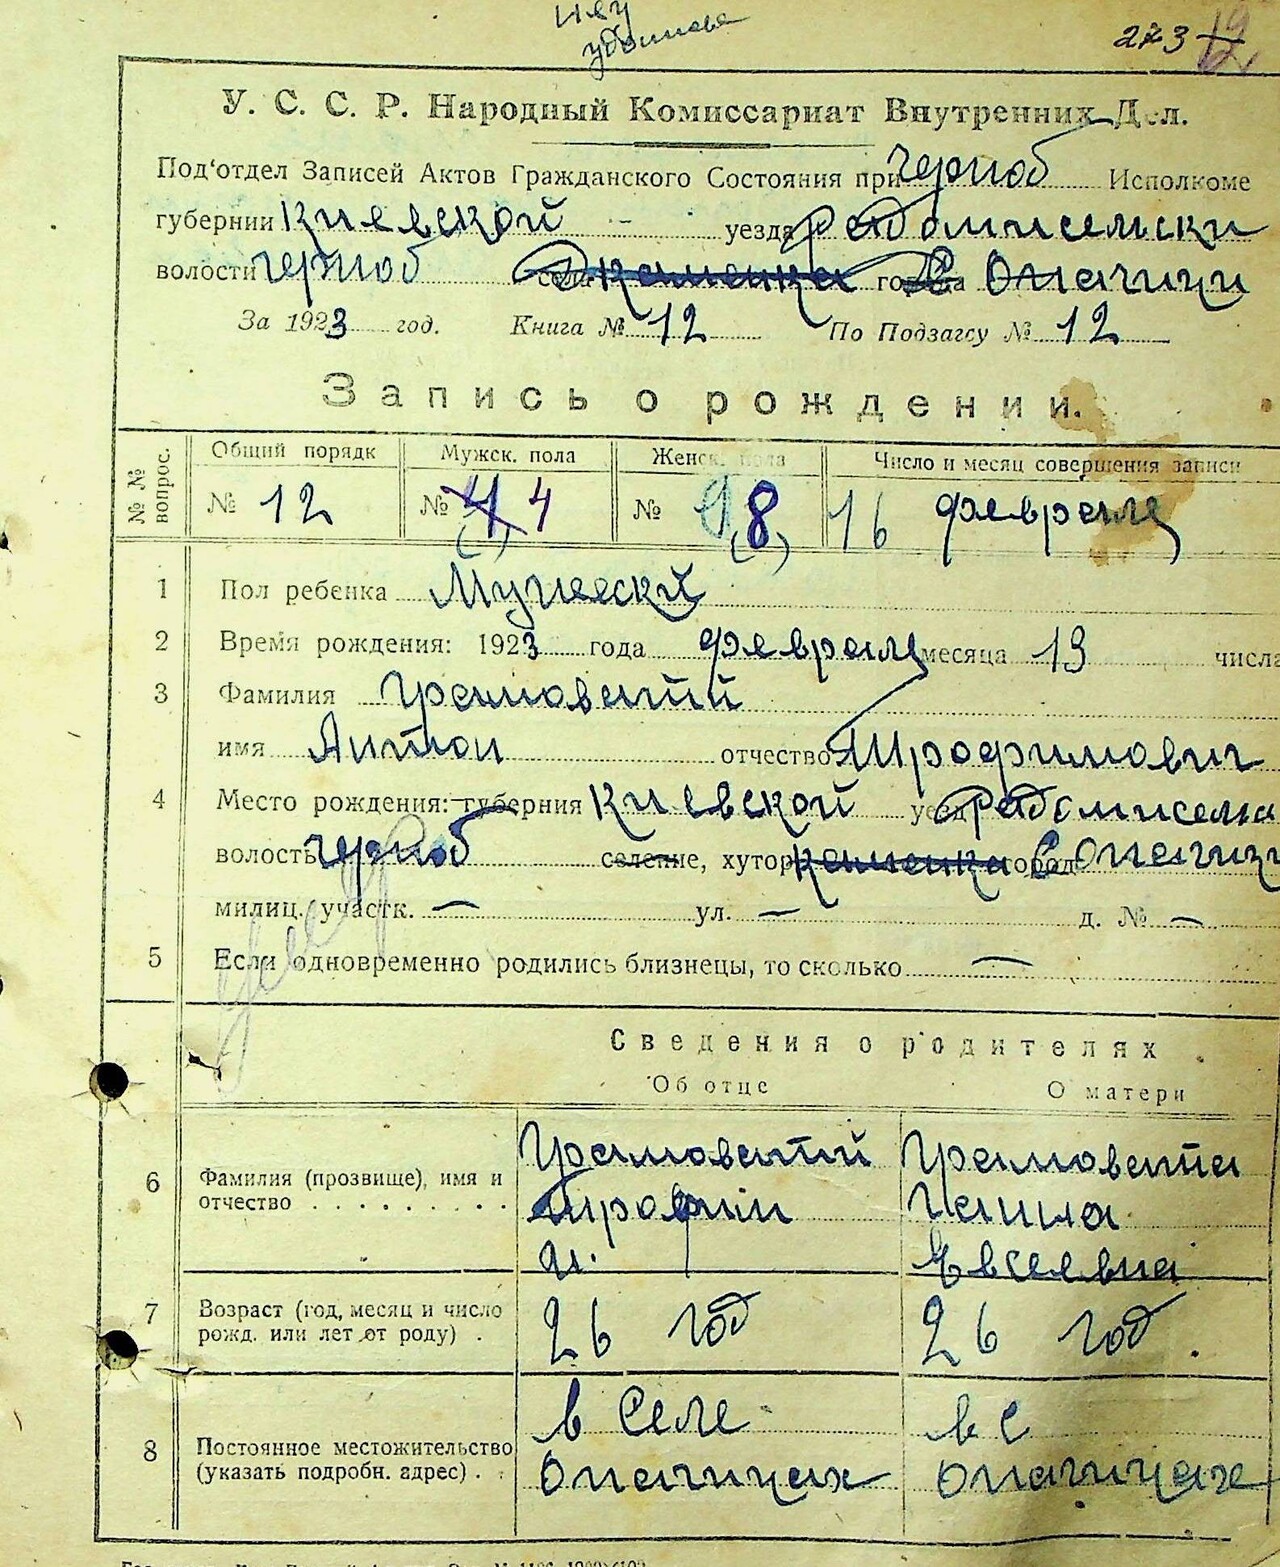 273 12
У. С. С. Р. Народный Комиссариат Внутренних Дел.
Под'отдел Записей Актов Гражданского Состояния при Черноб Исполкоме
губернии Киевской - уезда Радомисельски
волости Черноб села Каменка города С Опачичи
За 1923 год. Книга № 12 По Подзагсу № 12
Запись о рождении.
№ № вопрос. Общий порядк Мужск. пола Женск. пола Число и месяц совершения записи
№ 12 № 4 4 № 9 (8) 16 февраля
1 Пол ребенка Мужеский
2 Время рождения: 1923 года февраля месяца 13 числа
3 Фамилия Грамоватий
имя Антон отчество Трофимович
4 Место рождения: губерния Киевской уезд Радомисель
волость Черноб селение, хутор Каменка город С Опачичи
милиц. участк. — ул. — д. № —
5 Если одновременно родились близнецы, то сколько —
Сведения о родителях
Об отце О матери
6 Фамилия (прозвище), имя и отчество Грамоватий Грамовата
Трофим Ганна
Евсеевна
7 Возраст (год, месяц и число рожд. или лет от роду) 26 год 26 год.
8 Постоянное местожительство (указать подробн. адрес) в селе в с
Опачичах Опачичах